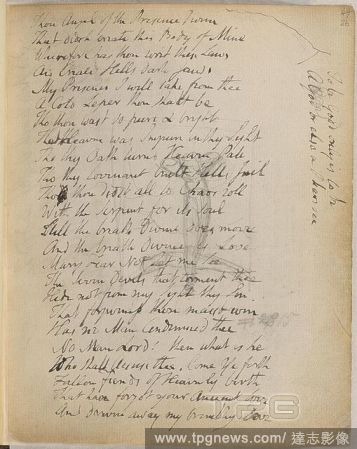 Thou Angel of the Presence Divine
That didst create this Body of Mine
Wherefore has thou writ these Laws
And Created Hells dark jaws
My Presence I will take from thee
A Cold Leper thou shalt be
Tho thou wast so pure & bright
That Heaven was Impure in thy Sight
Tho thy Oath turnd Heaven Pale
Tho thy Covenant built Hells Jail
Tho thou didst all to Chaos roll
With the Serpent for its soul
Still the breath Divine does move
And the breath Divine is Love
Mary Fear Not Let me see
The Seven Devils that torment thee
Hide not from my Sight thy Sin
That forgiveness thou maist win
Has no Man Condemned thee
No Man Lord! then what is he
Who shall Accuse thee. Come Ye forth
Fallen fiends of Heavnly birth
That have forgot your Ancient love
And driven away my trembling Dove
To be Good only is to be
A God or else a Pharisee
www.tpgnews.com/達志影像